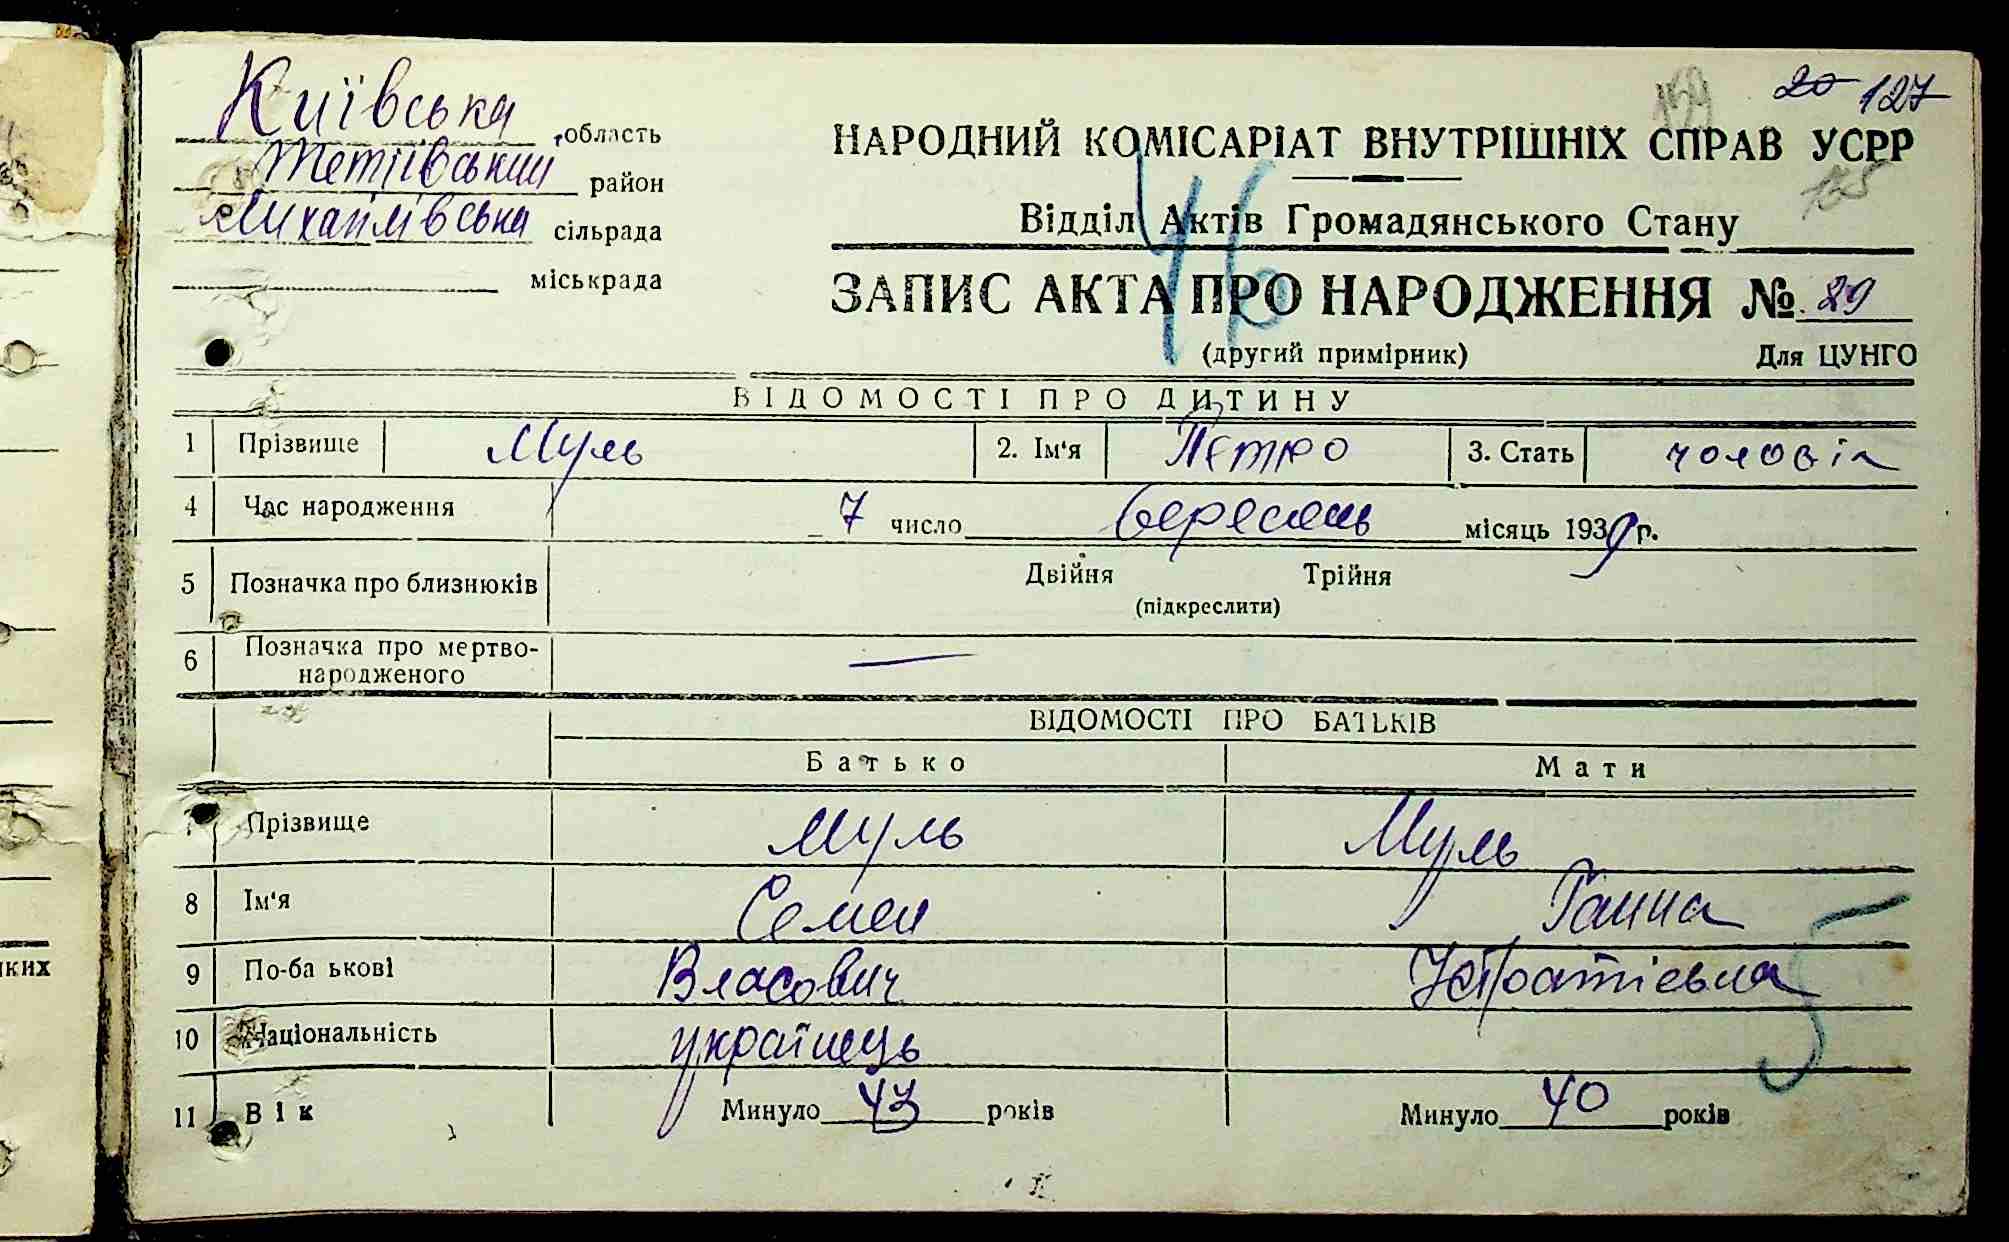 159 20 127
Київська область
Тетіївський район
Михайлівська сільрада
міськрада
НАРОДНИЙ КОМІСАРІАТ ВНУТРІШНІХ СПРАВ УСРР
125
Відділ Актів Громадянського Стану
46
ЗАПИС АКТА ПРО НАРОДЖЕННЯ №. 29
(другий примірник) Для ЦУНГО
ВІДОМОСТІ ПРО ДИТИНУ
1 Прізвище Муль 2. Ім'я Петро 3. Стать чоловік
4 Час народження 7 число березень місяць 1939 р.
5 Позначка про близнюків Двійня Трійня
(підкреслити)
6 Позначка про мертво-
народженого —
ВІДОМОСТІ ПРО БАТЬКІВ
Батько Мати
7 Прізвище Муль Муль
8 Ім'я Семен Ганна
9 По-ба ькові Власович
10 Національність українець
11 Вік Минуло 43 років Минуло 40 років
яких